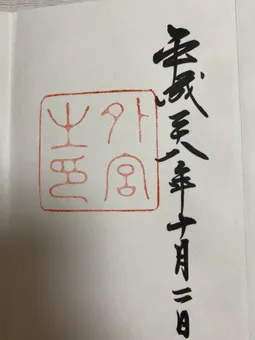 平成二十八年十月二日
外宮
之印